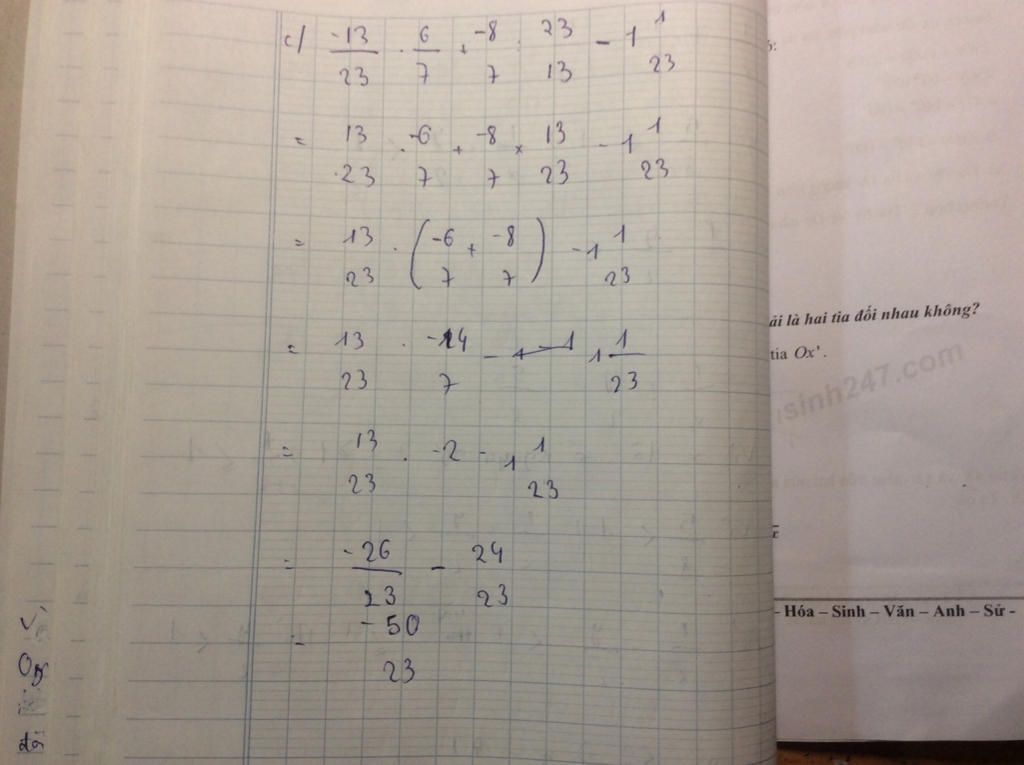 c/ -13/23 . 6/7 + -8/7 : 23/13 - 1 1/23
= 13/23 . -6/7 + -8/7 × 13/23 - 1 1/23
= 13/23 . (-6/7 + -8/7) - 1 1/23
= 13/23 . -14/7 - 1 1/23
= 13/23 . -2 - 1 1/23
= -26/23 - 24/23
= -50/23
ải là hai tia đối nhau không?
tia Ox'.
sinh247.com
- Hóa – Sinh – Văn – Anh – Sử -